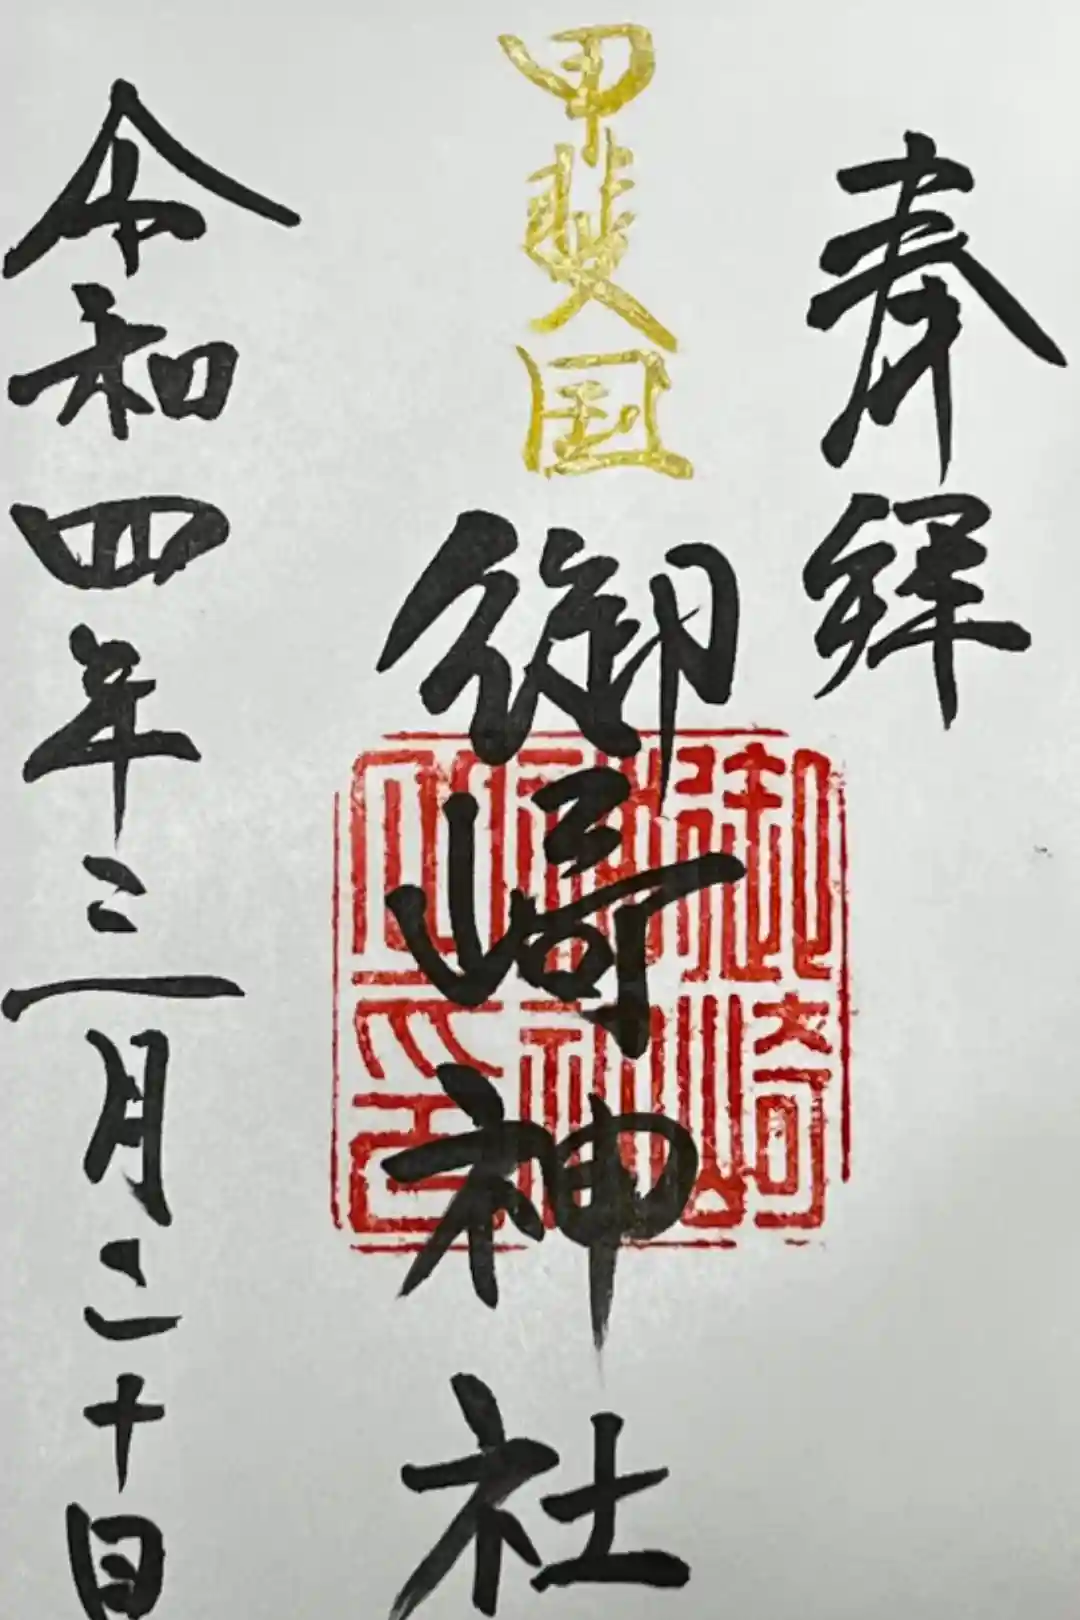 奉拝
甲斐国
御崎神社
御崎神社之印
令和四年三月二十日